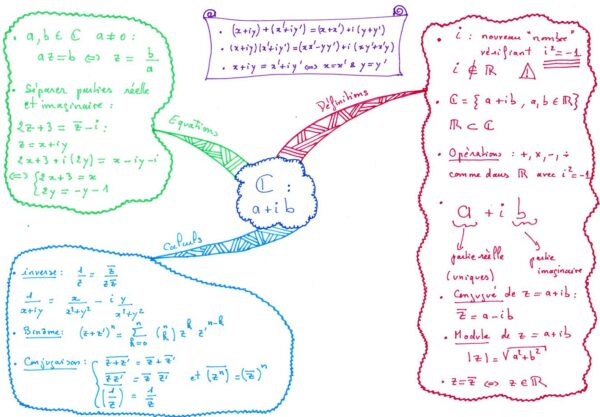 • (x+iy) + (x'+iy') = (x+x') + i(y+y')
• (x+iy)(x'+iy') = (xx'-yy') + i(xy'+x'y)
• x+iy = x'+iy' ⟺ x=x' & y=y'
• a, b ∈ ℂ a≠0 :
az=b ⟺ z = b/a
• Séparer parties réelle
et imaginaire :
2z+3 = z̅-i :
z = x+iy
2x+3+i(2y) = x-iy-i
⟺ { 2x+3 = x
{ 2y = -y-1
Equations
Définitions
ℂ :
a+ib
Calculs
• i : nouveau "nombre"
vérifiant i²=-1
i ∉ ℝ ⚠
• ℂ = { a+ib, a, b ∈ ℝ }
ℝ ⊂ ℂ
• Opérations : +, x, -, ÷
comme dans ℝ avec i²=-1
• a + i b
partie réelle
(uniques)
partie
imaginaire
• Conjugué de z = a+ib :
z̅ = a-ib
• Module de z = a+ib
|z| = √(a²+b²)
• z=z̅ ⟺ z ∈ ℝ
• inverse : 1/z = z̅/zz̅
1/(x+iy) = x/(x²+y²) - i y/(x²+y²)
• Binôme : (z+z')ⁿ = ∑ₖ₌₀ⁿ (n k) zᵏ z'ⁿ⁻ᵏ
• Conjugaison : { \overline{z+z'} = z̅ + z̅'
{ \overline{zz'} = z̅ z̅' et \overline{(zⁿ)} = (z̅)ⁿ
{ \overline{(1/z)} = 1/z̅